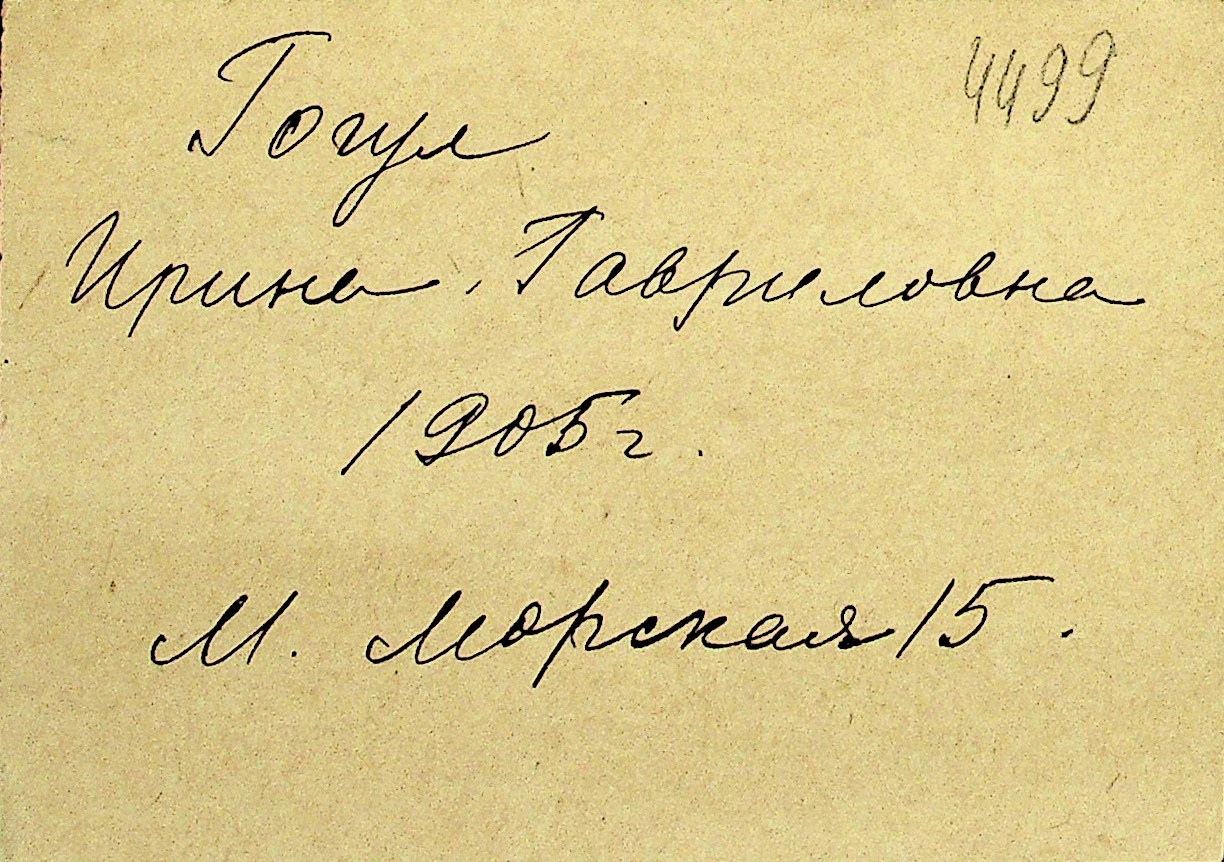 4499
Гогул
Ирина Гавриловна
1905 г.
М. Морская 15.